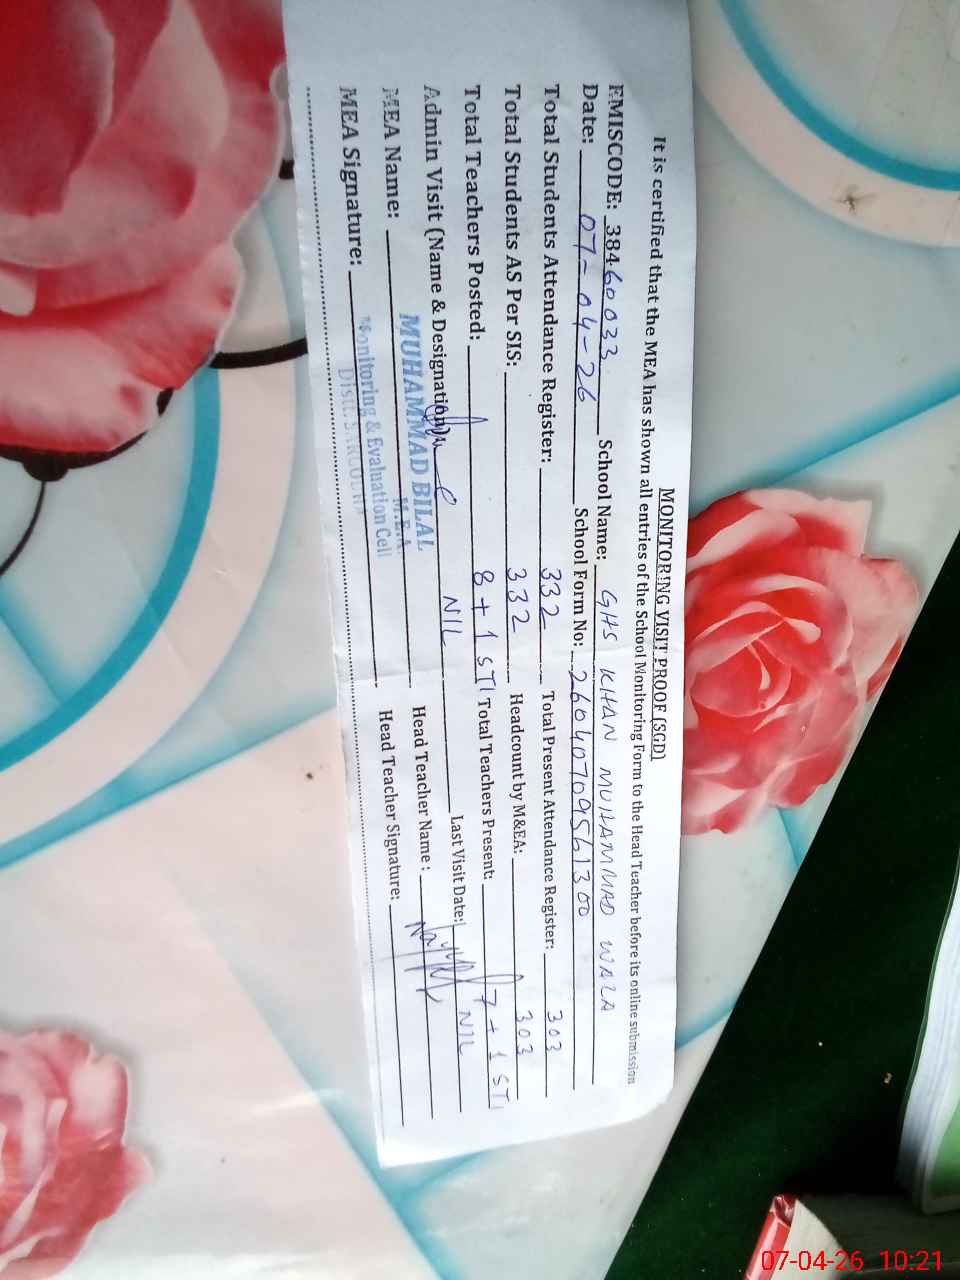 MONITORING VISIT PROOF (SGD)
It is certified that the MEA has shown all entries of the School Monitoring Form to the Head Teacher before its online submission
EMISCODE: 38460033 School Name: GHS KHAN MUHAMMAD WALA
Date: 07-04-26 School Form No: 26040709561300
Total Students Attendance Register: 332 Total Present Attendance Register: 303
Total Students AS Per SIS: 332 Headcount by M&EA: 303
Total Teachers Posted: 8 + 1 STI Total Teachers Present: 7 + 1 STI
Admin Visit (Name & Designation): NIL Last Visit Date: NIL
MEA Name: MUHAMMAD BILAL Head Teacher Name:
M.E.A.
MEA Signature: Monitoring & Evaluation Cell Head Teacher Signature:
Distt. SARGODHA
07-04-26 10:21